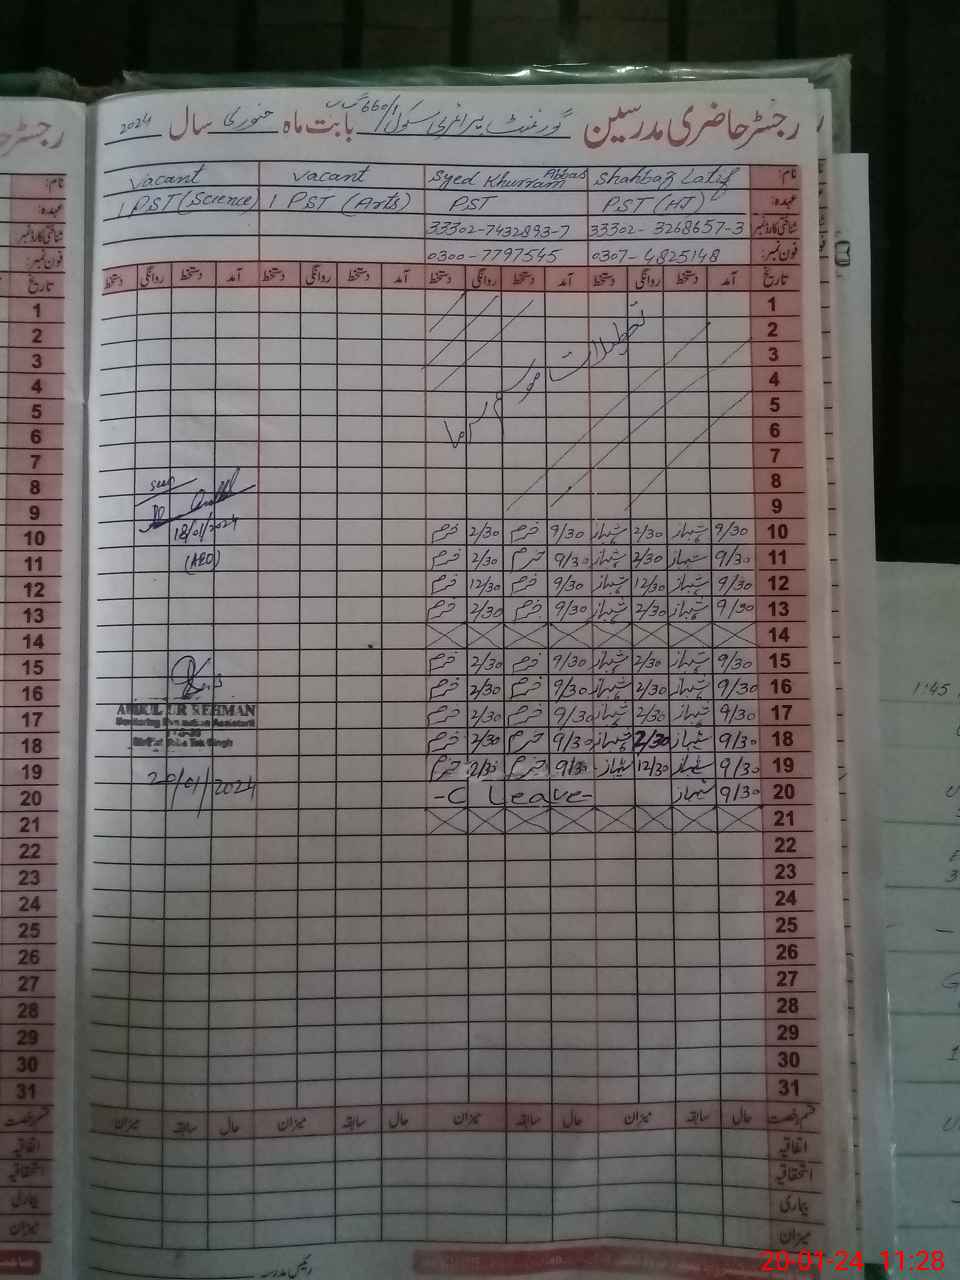 رجسٹر حاضری مدرسین گورنمنٹ پرائمری سکول 660/ گ ب بابت ماہ جنوری سال 2024
نام: Shahbaz Latif Syed Khurram Abbas vacant vacant
عہدہ: PST (HT) PST 1 PST (Arts) 1 PST (Science)
شناختی کارڈ نمبر 33302-3268657-3 33302-7432893-7
فون نمبر: 0307-4825148 0300-7797545
تاریخ آمد دستخط روانگی دستخط آمد دستخط روانگی دستخط آمد دستخط روانگی دستخط آمد دستخط روانگی دستخط
1
2
3
4
5
6
7
8
9
تعطیلات موسم سرما
10 9/30 شہباز 2/30 شہباز 9/30 خرم 2/30 خرم
11 9/30 شہباز 2/30 شہباز 9/30 خرم 2/30 خرم
12 9/30 شہباز 12/30 شہباز 9/30 خرم 12/30 خرم
13 9/30 شہباز 2/30 شہباز 9/30 خرم 2/30 خرم
14
15 9/30 شہباز 2/30 شہباز 9/30 خرم 2/30 خرم
16 9/30 شہباز 2/30 شہباز 9/30 خرم 2/30 خرم
17 9/30 شہباز 2/30 شہباز 9/30 خرم 2/30 خرم
18 9/30 شہباز 2/30 شہباز 9/30 خرم 2/30 خرم
19 9/30 شہباز 12/30 شہباز 9/30 خرم 2/30 خرم
20 9/30 شہباز -C Leave-
21
22
23
24
25
26
27
28
29
30
31
seen
18/01/2024
(AEO)
ABDUL UR REHMAN
Monitoring Evaluation Assistant
District Toba Tek Singh
20/01/2024
قسم رخصت حال سابقہ میزان حال سابقہ میزان حال سابقہ میزان حال سابقہ میزان
اتفاقیہ
استحقاقیہ
بیماری
میزان
رئیس مدرسہ
1:45
20-01-24 11:28